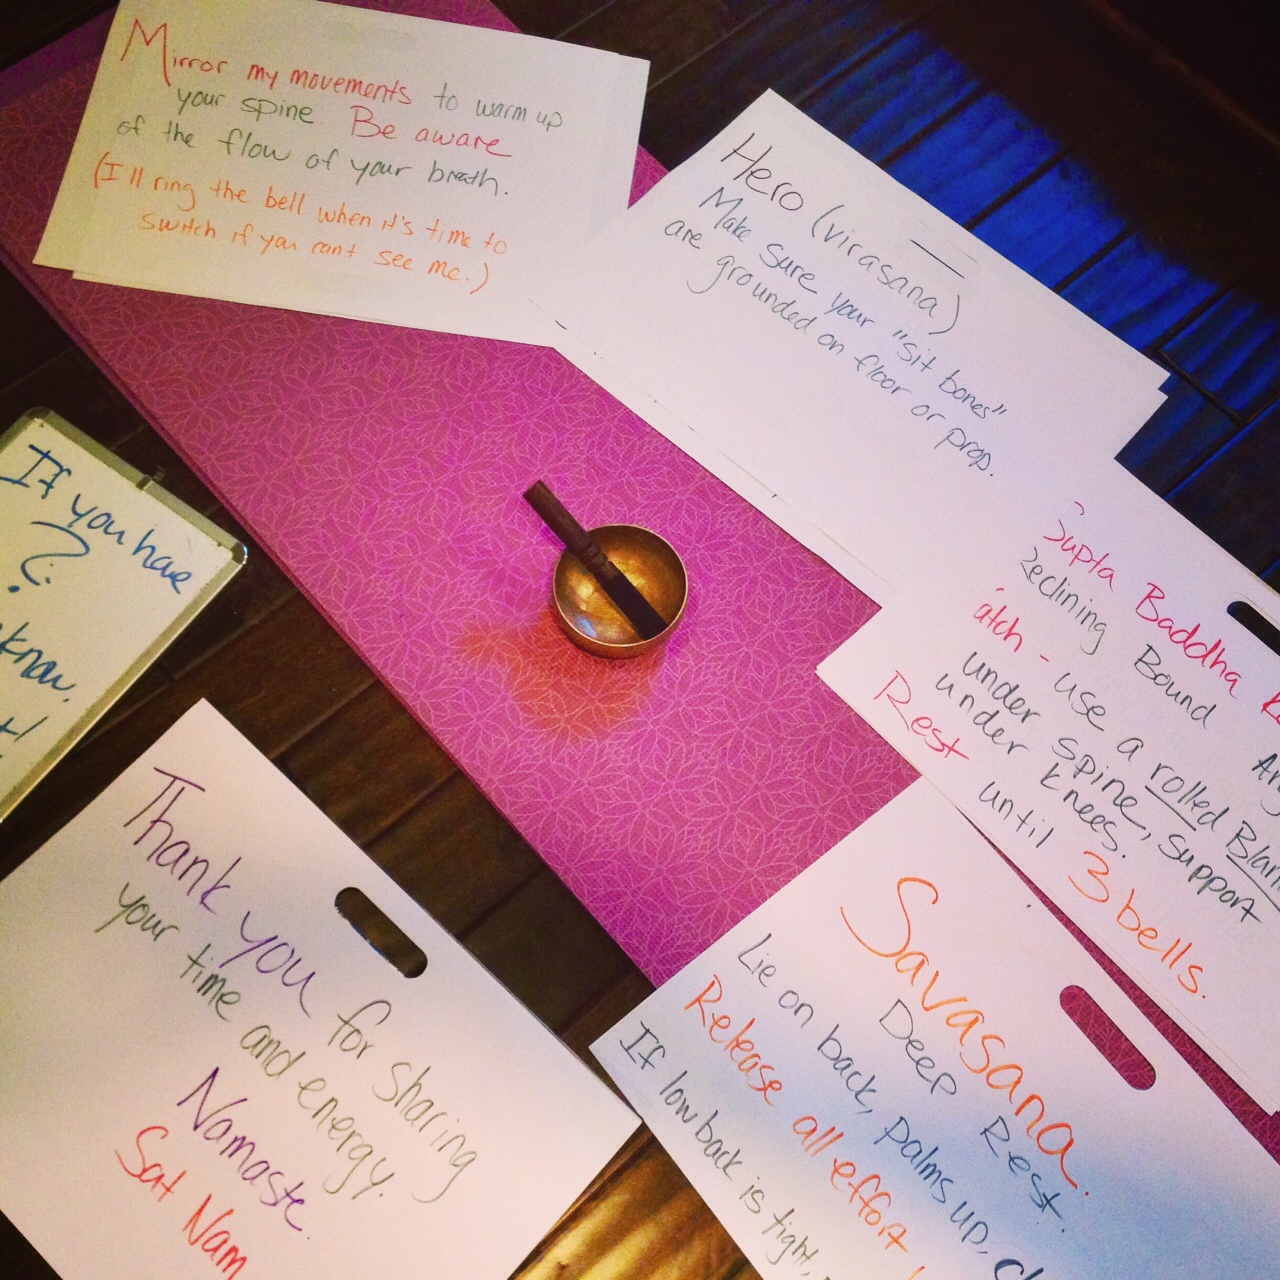 Mirror my movements to warm up
your spine. Be aware
of the flow of your breath.
(I'll ring the bell when it's time to
switch if you can't see me.)
Hero (virasana)
Make sure your "sit bones"
are grounded on floor or prop.
If you have
?
know.
Supta Baddha
Reclining Bound
use a rolled
under spine, support
under knees.
Rest until 3 bells.
Savasana.
Deep Rest.
Lie on back, palms up,
Release all effort
If low back is tight,
Thank you for sharing
your time and energy.
Namaste.
Sat Nam